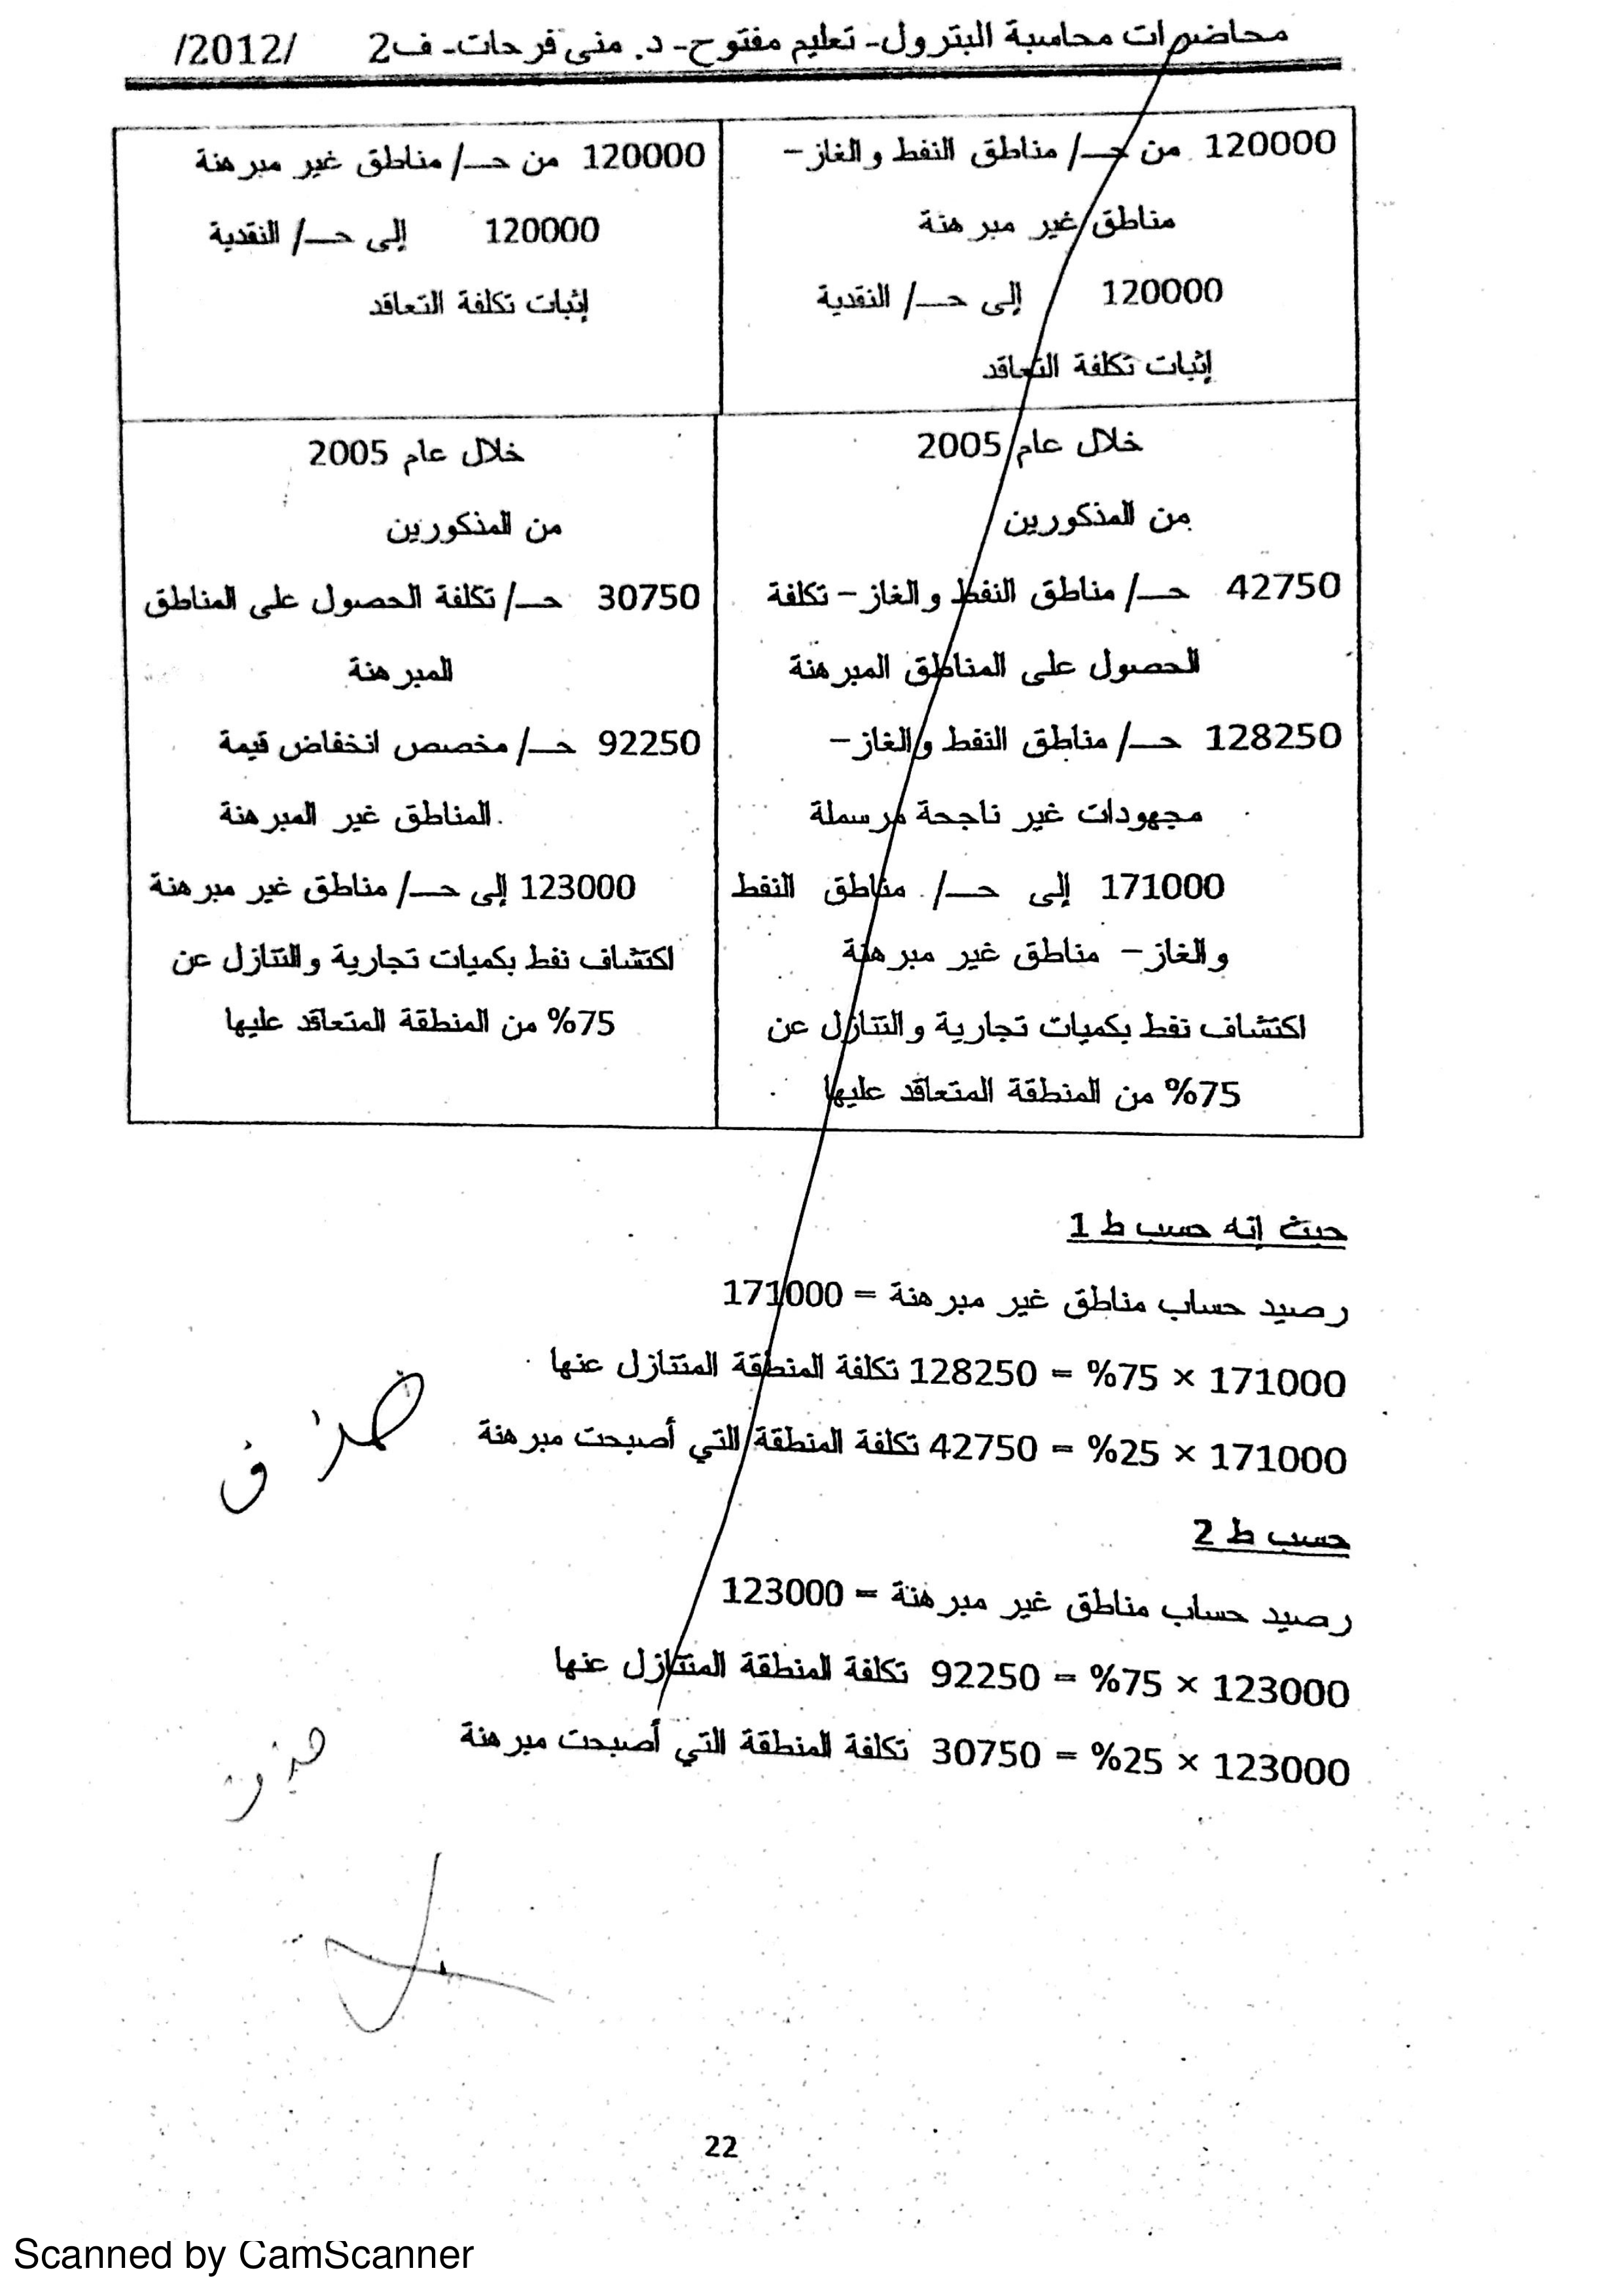 محاضرات محاسبة البترول- تعليم مفتوح- د. منى فرحات- ف2 /2012/
120000 من حـ/ مناطق النفط والغاز–
مناطق غير مبرهنة
120000 إلى حـ/ النقدية
إثبات تكلفة التعاقد
120000 من حـ/ مناطق غير مبرهنة
120000 إلى حـ/ النقدية
إثبات تكلفة التعاقد
خلال عام 2005
من المذكورين
42750 حـ/ مناطق النفط والغاز– تكلفة
الحصول على المناطق المبرهنة
128250 حـ/ مناطق النفط والغاز–
مجهودات غير ناجحة مرسملة
171000 إلى حـ/ مناطق النفط
والغاز– مناطق غير مبرهنة
اكتشاف نفط بكميات تجارية والتنازل عن
75% من المنطقة المتعاقد عليها
خلال عام 2005
من المذكورين
30750 حـ/ تكلفة الحصول على المناطق
المبرهنة
92250 حـ/ مخصص انخفاض قيمة
المناطق غير المبرهنة
123000 إلى حـ/ مناطق غير مبرهنة
اكتشاف نفط بكميات تجارية والتنازل عن
75% من المنطقة المتعاقد عليها
حيث إنه حسب ط 1
رصيد حساب مناطق غير مبرهنة = 171000
171000 × 75% = 128250 تكلفة المنطقة المتنازل عنها
171000 × 25% = 42750 تكلفة المنطقة التي أصبحت مبرهنة
حسب ط 2
رصيد حساب مناطق غير مبرهنة = 123000
123000 × 75% = 92250 تكلفة المنطقة المتنازل عنها
123000 × 25% = 30750 تكلفة المنطقة التي أصبحت مبرهنة
22
Scanned by CamScanner